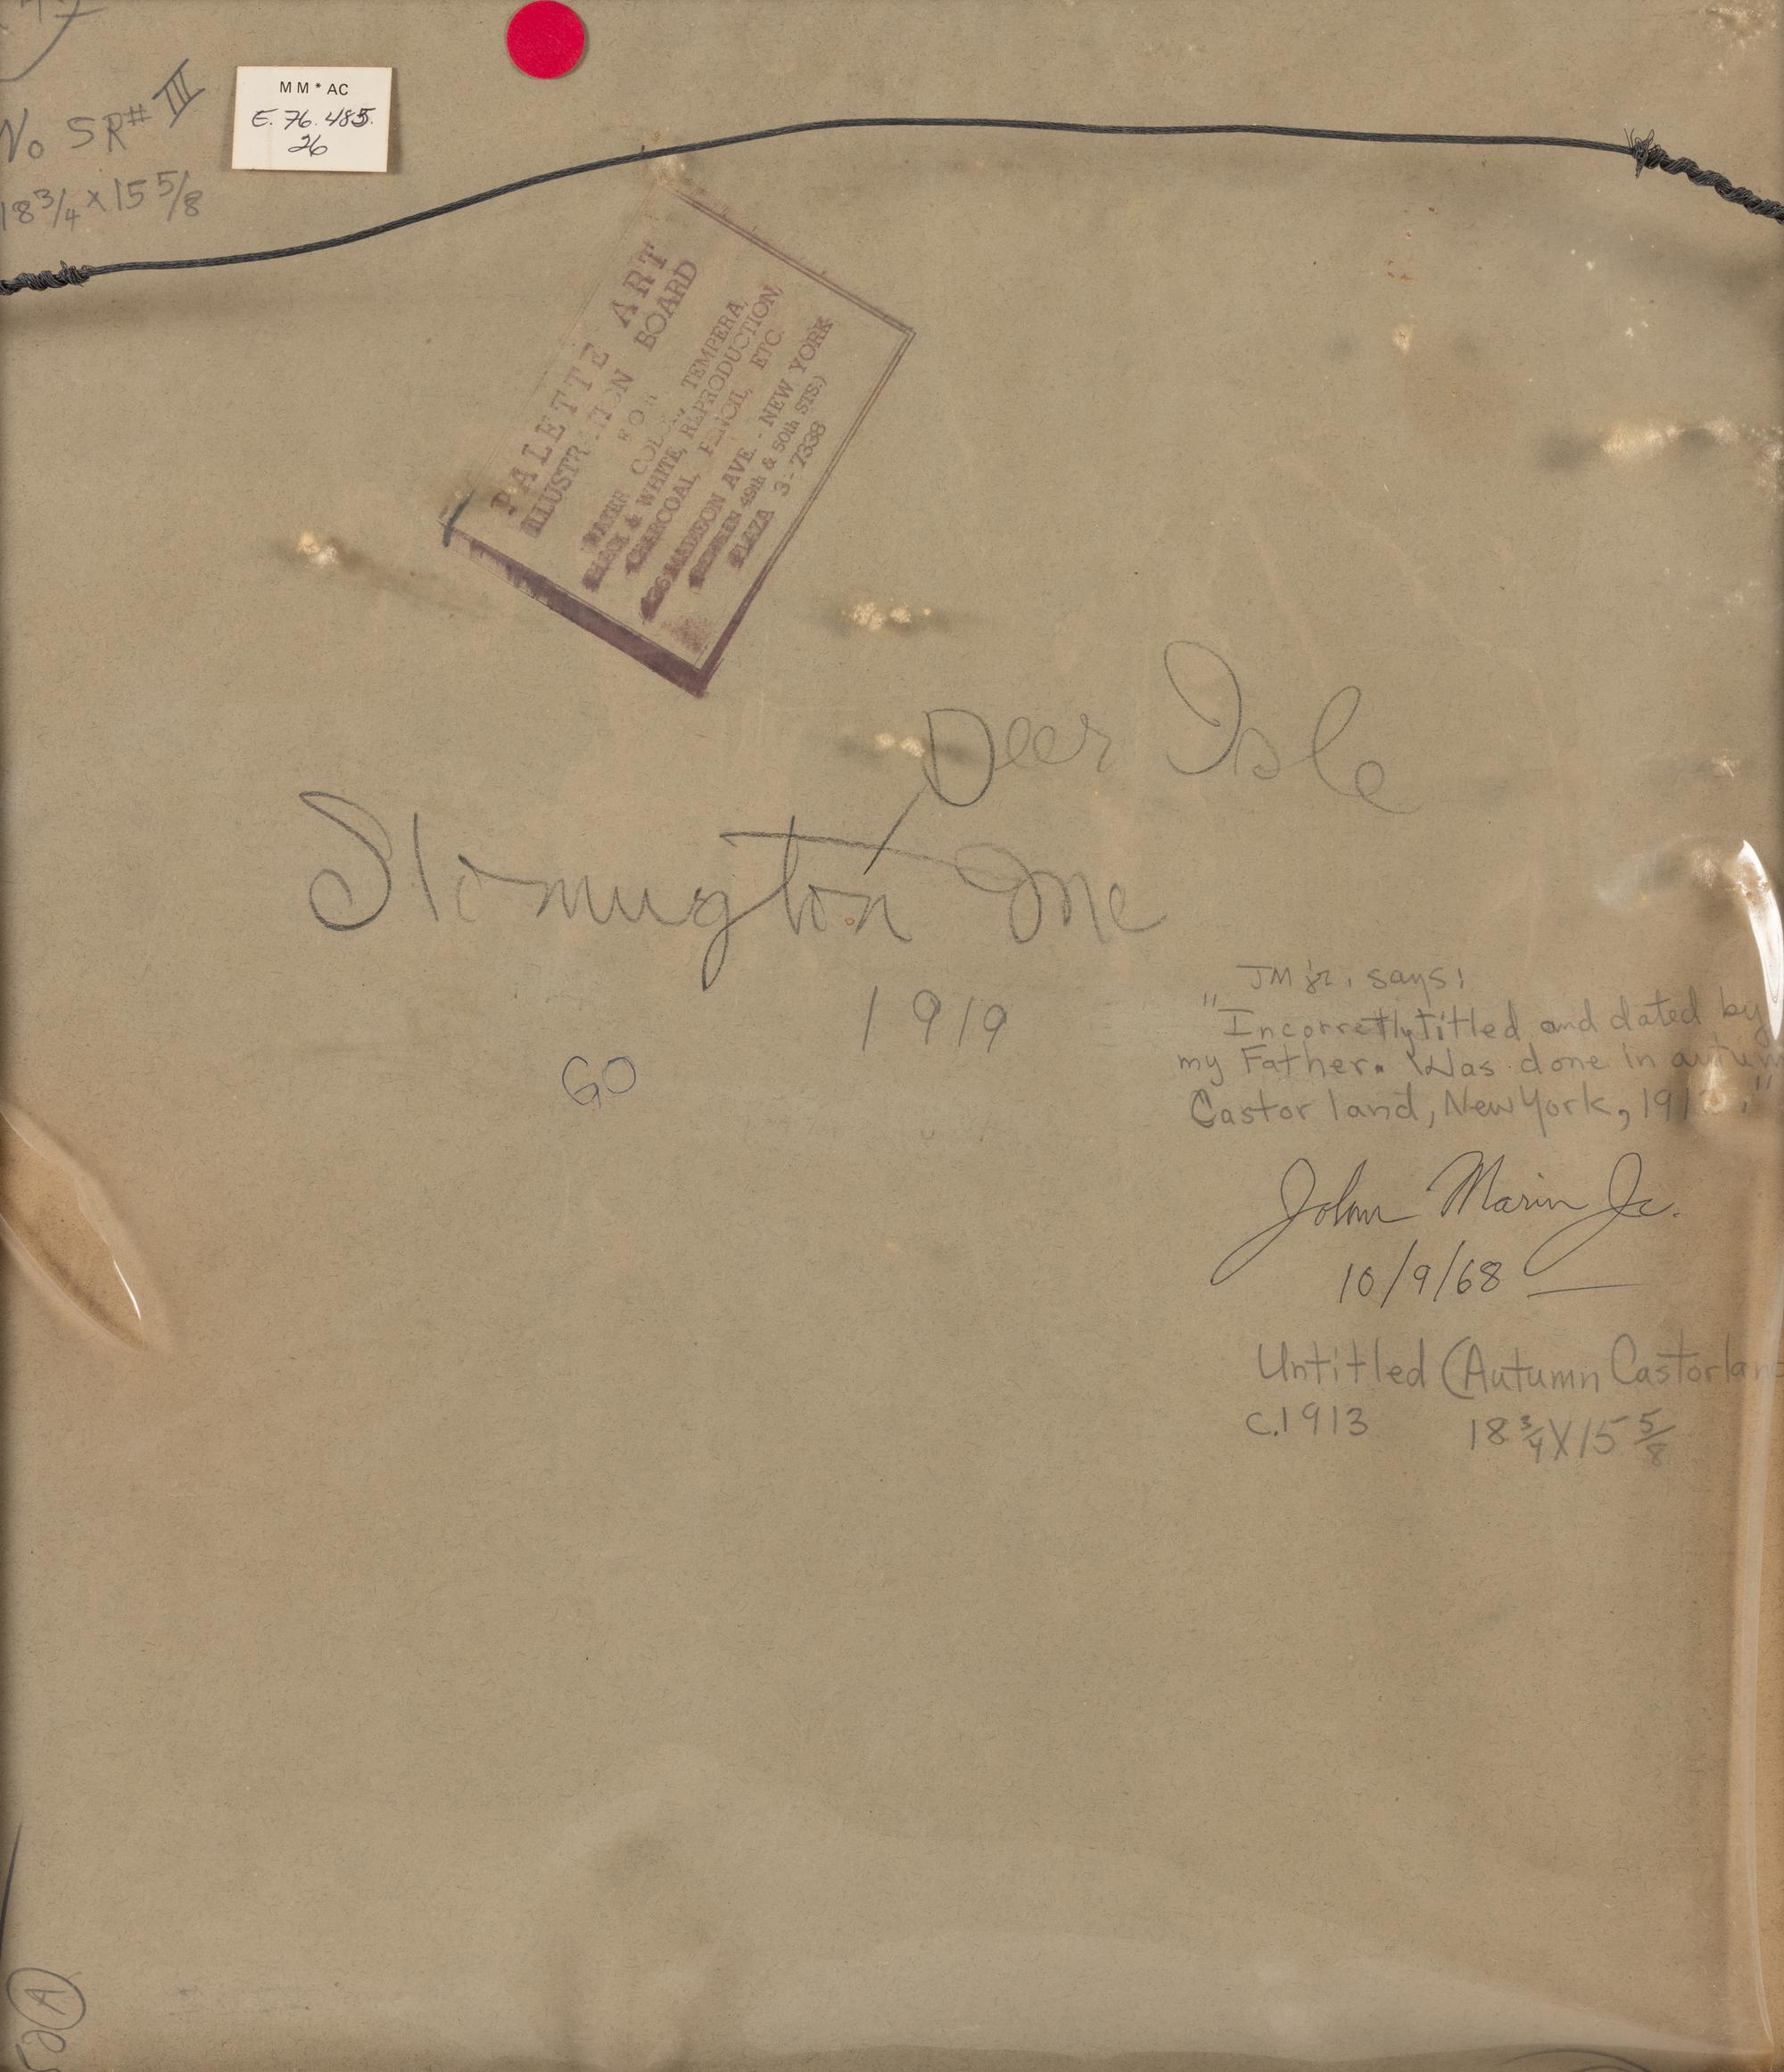 No SR# III
18 3/4 x 15 5/8
MM*AC
E. 76.485.
26
PALETTE ART
ILLUSTRATION BOARD
FOR
WATER COLOR, TEMPERA,
BLACK & WHITE, REPRODUCTION,
CHARCOAL, PENCIL, ETC.
MADISON AVE. - NEW YORK
(BETWEEN 49th & 50th STS.)
PLAZA 3-7338
Deer Isle
Stonington Me
1919
GO
JM jr. says:
"Incorrectly titled and dated by
my Father. Was done in autumn
Castorland, New York, 191 ."
John Marin Jr.
10/9/68
Untitled (Autumn Castorlan
c.1913 18 3/4 X 15 5/8
A